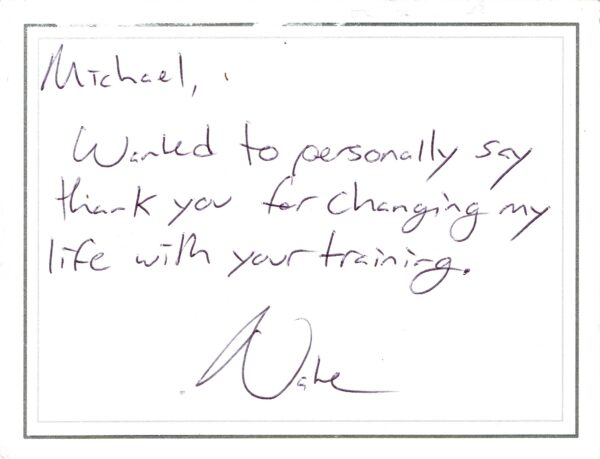 Michael,
Wanted to personally say
thank you for changing my
life with your training.
Nate